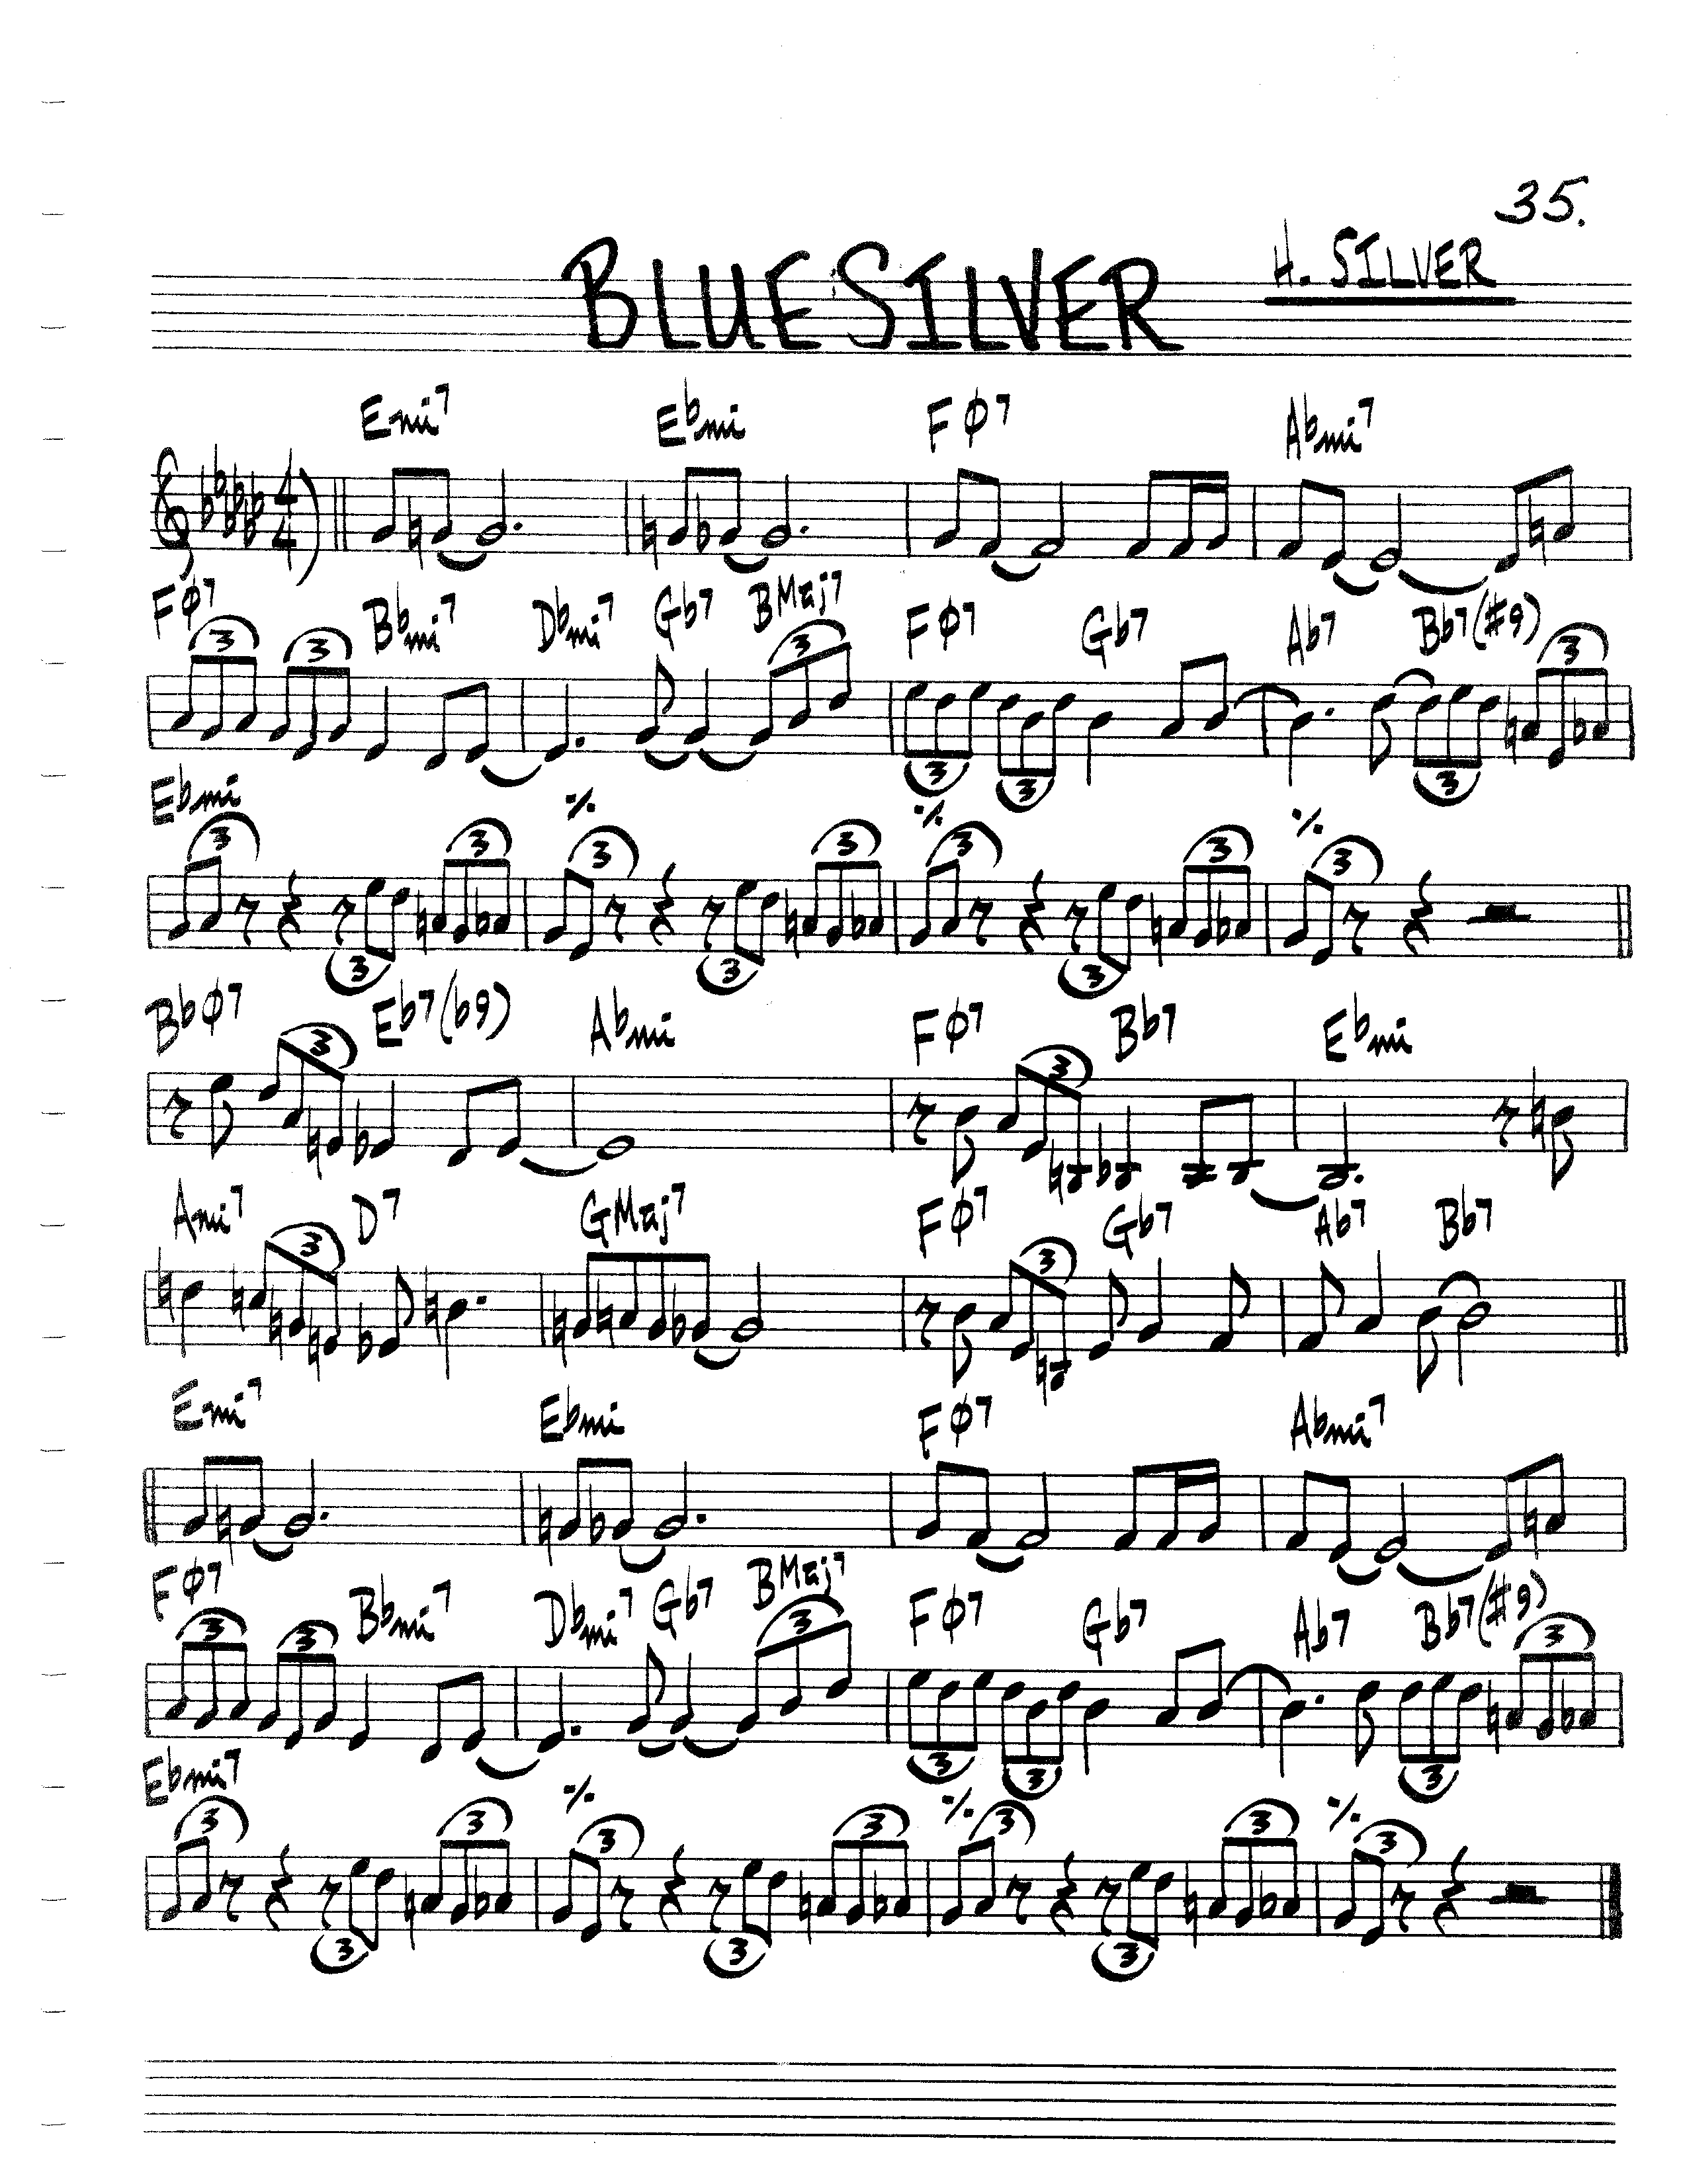 35.
BLUE SILVER
H. SILVER
Emi7 Ebmi Fø7 Abmi7
4/4
Fø7 Bbmi7 Dbmi7 Gb7 BMaj7 Fø7 Gb7 Ab7 Bb7(#9)
3 3 3 3 3 3 3
Ebmi ٪ ٪ ٪
3 3 3 3 3 3 3
3 3 3
Bbø7 Eb7(b9) Abmi Fø7 Bb7 Ebmi
3 3
Ami7 D7 GMaj7 Fø7 Gb7 Ab7 Bb7
3 3
Emi7 Ebmi Fø7 Abmi7
Fø7 Bbmi7 Dbmi7 Gb7 BMaj7 Fø7 Gb7 Ab7 Bb7(#9)
3 3 3 3 3 3 3
Ebmi7 ٪ ٪ ٪
3 3 3 3 3 3 3
3 3 3